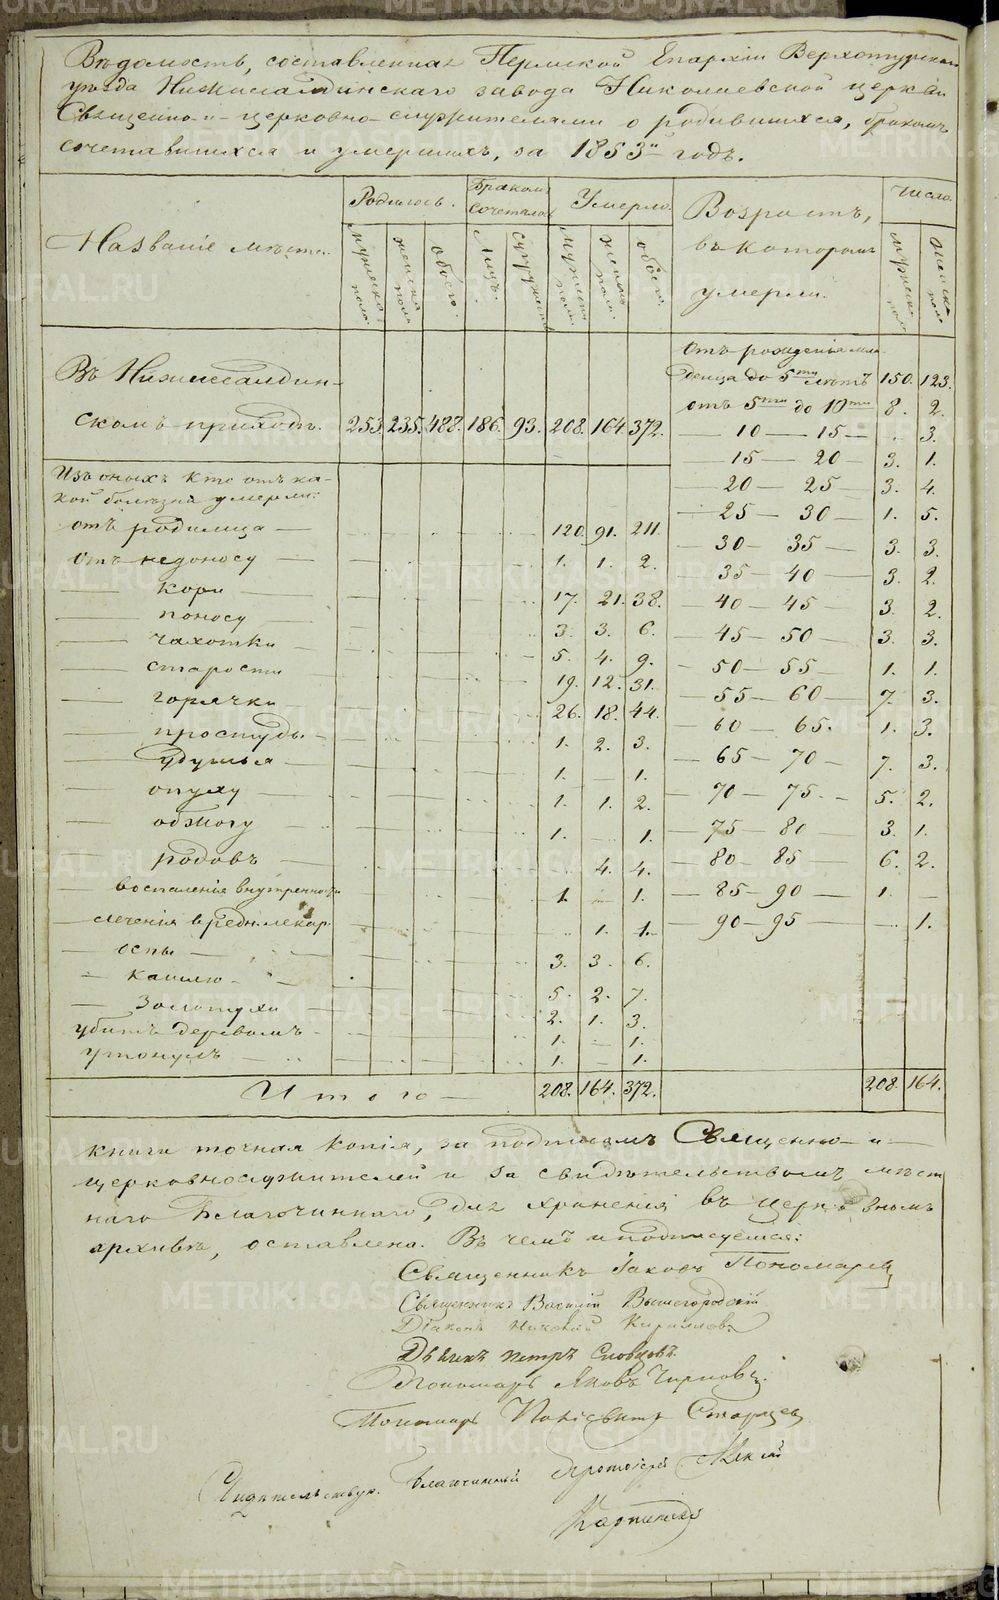 Вѣдомость, составленная Пермской Епархіи Верхотурскаго
уѣзда Нижнесалдинскаго завода Николаевской церкви
Священно- и церковно-служителями о родившихся, бракомъ
сочетавшихся и умершихъ, за 1853й годъ.
Названіе мѣста. Родилось. Бракомъ сочеталось Умерло. Возрастъ, въ которомъ умерли. Число
мужеска пола. женска пола обоего. Лицъ. супружествъ мужеска пола. женска пола. обоего. мужеска пола женска пола
Въ Нижнесалдин-
скомъ приходѣ. 253. 235. 488. 186. 93. 208. 164 372.
отъ рожденія мла-
денца до 5ти лѣтъ 150. 123.
отъ 5ти до 10ти 8. 2.
— 10 — 15 — . 3.
— 15 — 20 — 3. 1.
— 20 — 25 — 3. 4.
— 25 — 30 — 1. 5.
— 30 — 35 — 3. 3.
— 35 — 40 — 3. 2.
— 40 — 45 — 3. 2.
— 45 — 50 — 3. 3.
— 50 — 55 — 1. 1.
— 55 — 60 — 7. 3.
— 60 — 65. 1. 3.
— 65 — 70 — 7. 3.
— 70 — 75. — 5. 2.
— 75 — 80 — 3. 1.
— 80 — 85 — 6. 2.
— 85 — 90 — 1. —
— 90 — 95 — 1.
Изъ оныхъ кто отъ ка-
кой болѣзни умерли:
отъ родимца — 120. 91. 211.
отъ недоносу — 1. 1. 2.
— кори — 17. 21. 38.
— поносу — 3. 3. 6.
— чахотки — 5. 4. 9.
— старости — 19. 12. 31.
— горячки 26. 18. 44.
— простуды — 1. 2. 3.
— удушья — 1. — 1.
— опуху — 1. 1. 2.
— обжогу 1. — 1.
— родовъ — 4. 4.
— воспаленія внутренности 1. — 1.
— леченія вредн. лекар. 1. 1.
— оспы — 3. 3. 6.
— кашлю — 5. 2. 7.
— Золотухи — 2. 1. 3.
убитъ деревомъ — 1. — 1.
утонулъ — 1. 1.
Итого — 208. 164. 372. 208. 164.
книги точная копія, за подписомъ Священно- и
церковнослужителей и за свидѣтельствомъ мѣст
наго Благочиннаго, для храненія въ церковномъ
архивѣ, оставлена. Въ чемъ и подписуемся:
Священникъ Іаковъ Пономаревъ
Священникъ Василій Вышегородскій
Діаконъ Николай Кирилловъ
Дьячекъ Петръ Словцовъ.
Пономарь Яковъ Чирковъ.
Пономарь Старцевъ
Благочинный Протоіерей
METRIKI.GASO-URAL.RU